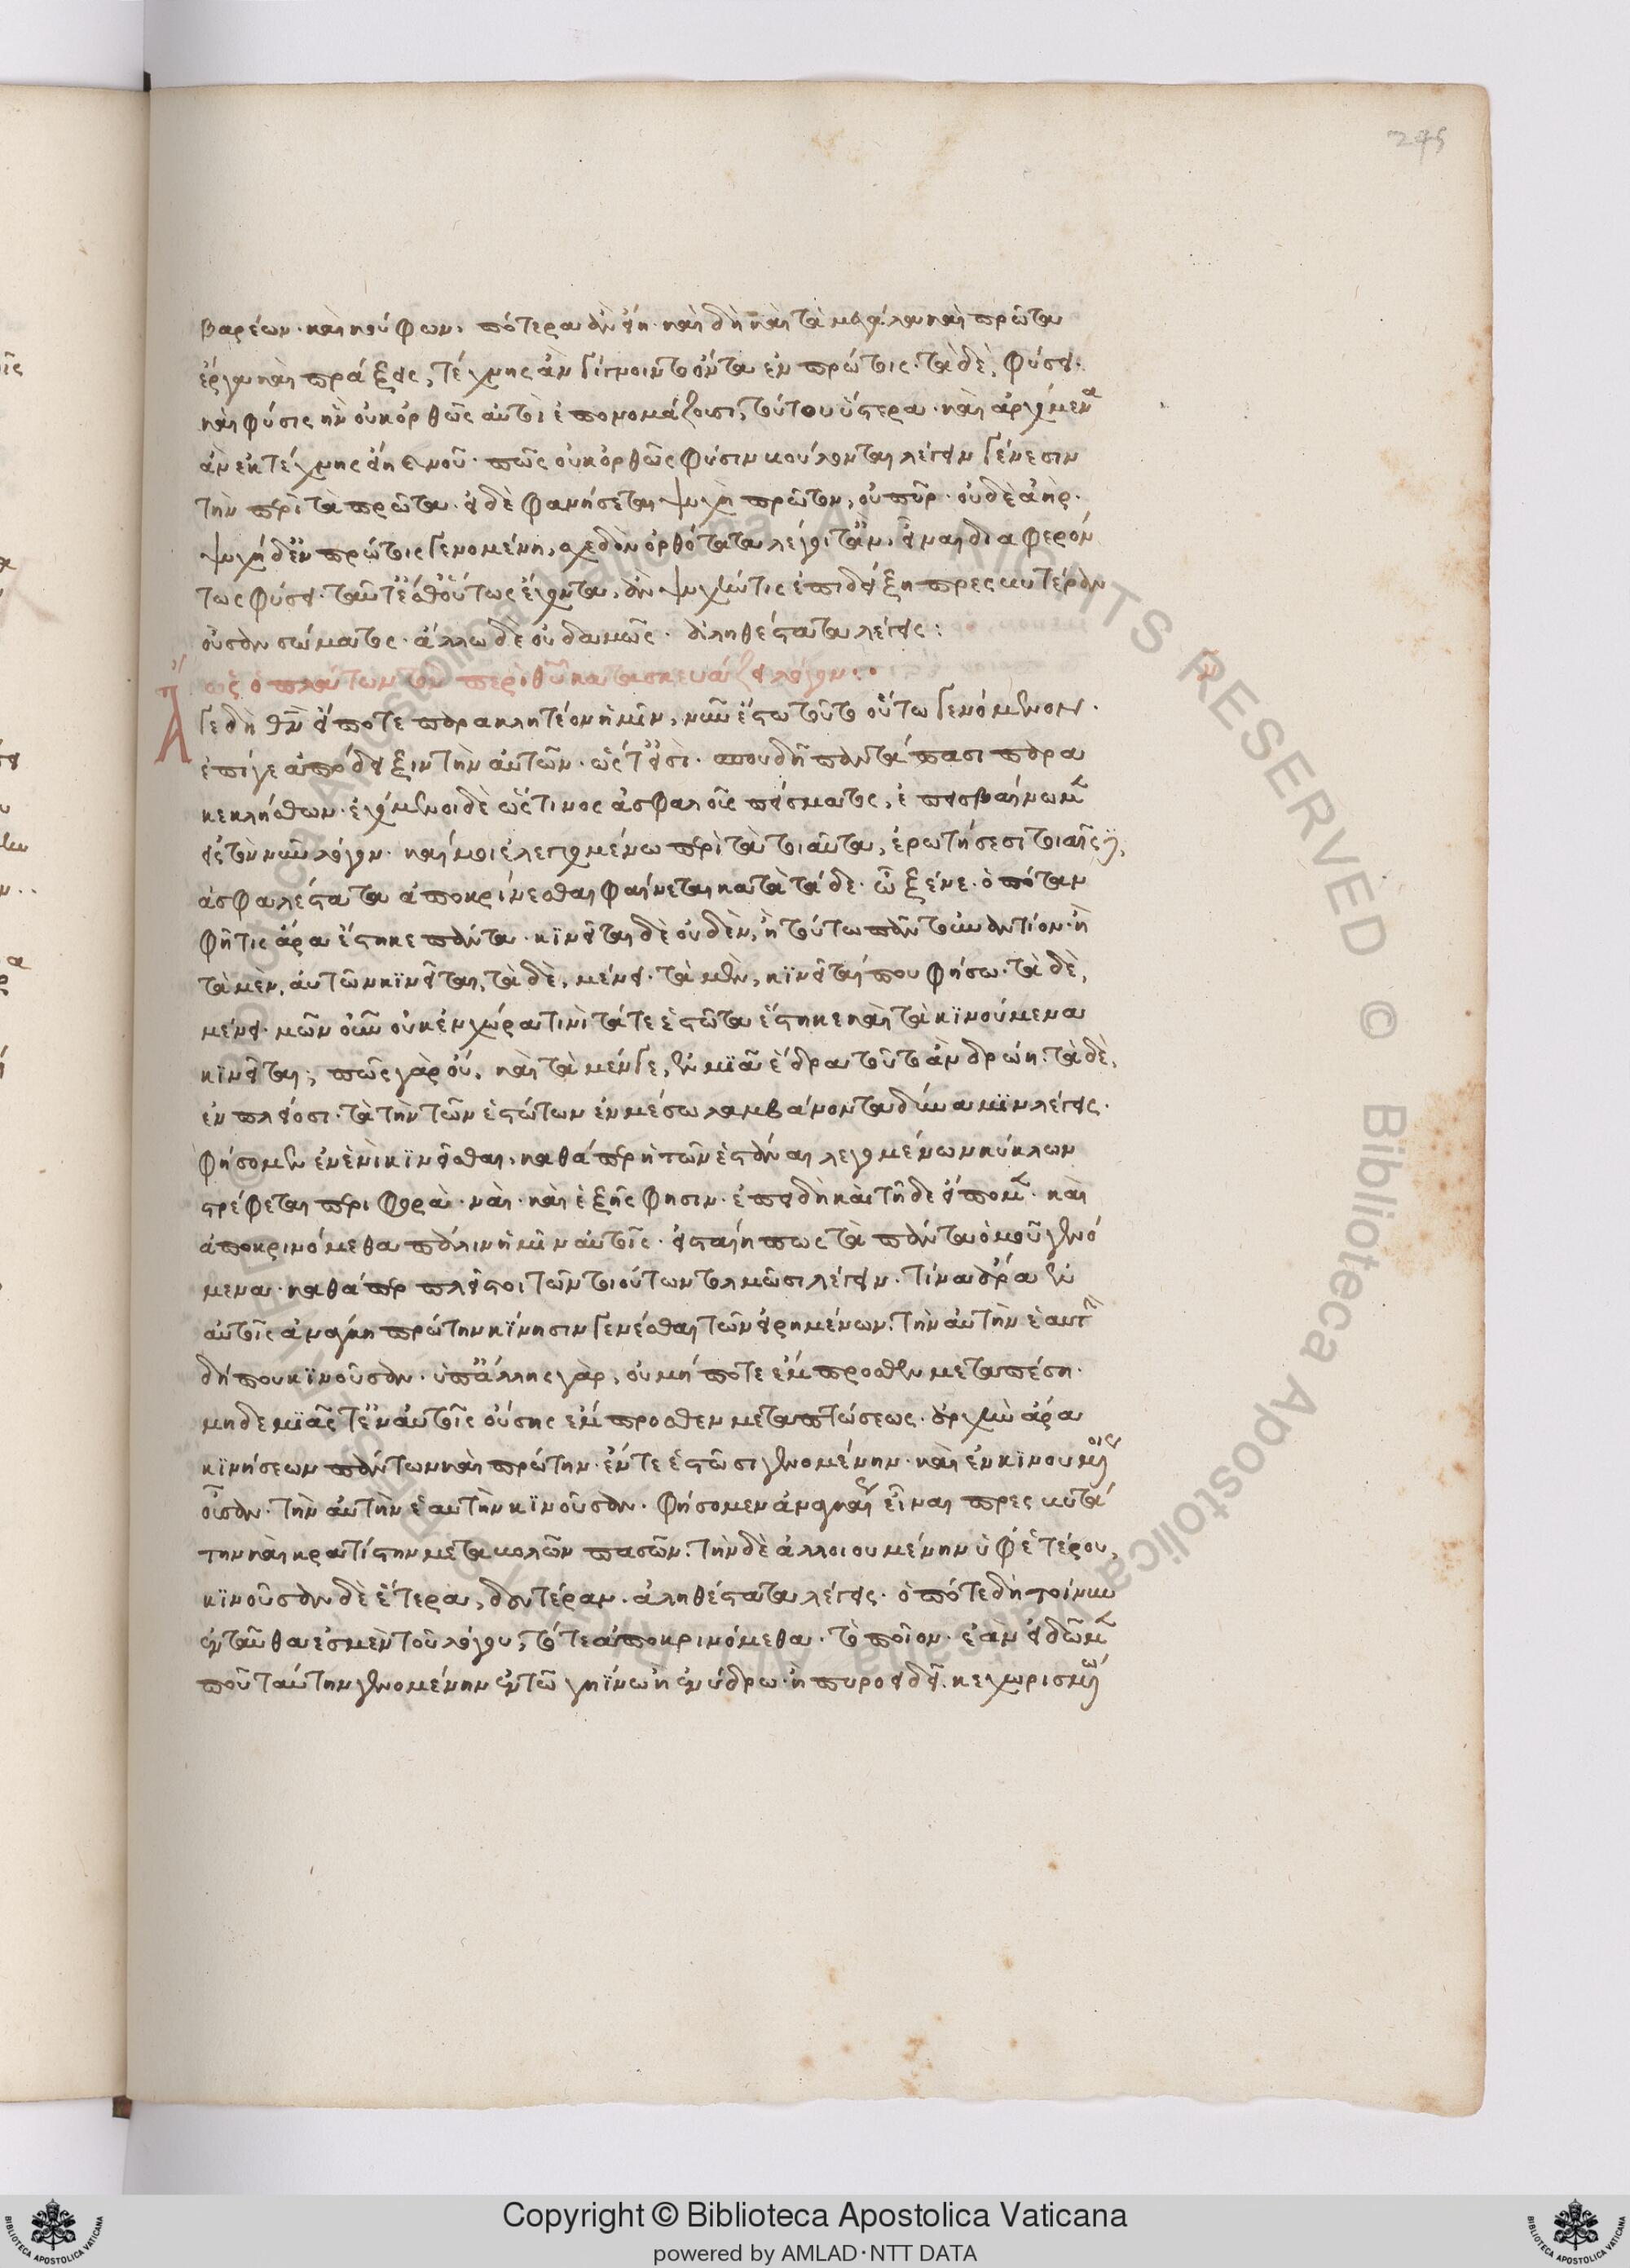 245
βαρέων· καὶ κούφων· πρότερα ἂν εἴη· καὶ δὴ καὶ τὰ μεγάλα καὶ πρῶτα
ἔργα καὶ πράξεις, τέχνης ἂν γίγνοιντο ὄντα ἐν πρώτοις· τὰ δὲ, φύσει·
καὶ φύσις ἣν οὐκ ὀρθῶς αὐτὸ ἐπονομάζουσι, τούτου ὕστερα· καὶ ἀρχόμενα
ἂν ἐκ τέχνης εἴη ϗ νοῦ· πῶς οὐκ ὀρθῶς φύσιν βούλονται λέγειν γένεσιν
τὴν περὶ τὰ πρῶτα· εἰ δὲ φανήσεται ψυχὴ πρῶτον, οὐ πῦρ· οὐδὲ ἀὴρ·
ψυχὴ δ' ἐν πρώτοις γενομένη, σχεδὸν ὀρθότατα λέγοιτ' ἂν, εἶναι διαφερόν
τως φύσει· ταῦτ' ἔσθ' οὕτως ἔχοντα, ἂν ψυχήν τις ἐπιδείξῃ πρεσβυτέραν
οὖσαν σώματος· ἄλλως δὲ οὐδαμῶς· ἀληθέστατα λέγεις:
ὡς ὁ πλάτων τὸν περὶ θεοῦ κατασκευάζει λόγον:·
Ἄγε δὴ θεὸν εἴποτε παρακλητέον ἡμῖν, νῦν ἔστω τοῦτο οὕτω γενόμενον·
ἐπί γε ἀπόδειξιν τὴν αὐτῶν· ὥς τ' εἰσὶ· σπουδῇ πάντα πασι παρα
κεκλήσθων· ἐχόμενοι δὲ ὥς τινος ἀσφαλοῦς πείσματος, ἐπεισβαίνωμεν
εἰς τὸν νῦν λόγον· καί μοι ἐλεγχομένω περὶ τὰ τοιαῦτα, ἐρωτήσεσι τοιαῖσδε,
ἀσφαλέστατα ἀποκρίνεσθαι φαίνεται κατὰ τάδε· ὦ ξένε· ὁπόταν
φῆ τις ἆρα ἕστηκε πάντα· κϊνεῖται δὲ οὐδὲν, ἢ τούτω πᾶν τοὐναντίον· ἢ
τὰ μὲν, αὐτῶν κϊνεῖται, τὰ δὲ, μένει· τὰ μὲν, κϊνεῖταί που φήσω· τὰ δὲ,
μένει· μῶν οὖν οὐκ ἐν χώρα τινὶ τά τε ἑστῶτα ἕστηκε καὶ τὰ κϊνούμενα
κϊνεῖται; πῶς γὰρ οὔ, καὶ τὰ μέν γε, ἐν μϊᾶ ἕδρα τοῦτο ἂν δρώη· τὰ δὲ,
ἐν πλείοσι· τὰ τὴν τῶν ἑστώτων ἐν μέσω λαμβάνοντα δύναμϊν λέγεις·
φήσομεν ἐν ἑνὶ κϊνεῖσθαι, καθάπερ ἡ τῶν ἑστάναι λεγομένων κύκλων
στρέφεται περιφορά· ναὶ· καὶ ἑξῆς φησιν· ἐπειδὴ καὶ τῆδε εἴπομεν· καὶ
ἀποκρινόμεθα πάλιν ἡμῖν αὐτοῖς· εἰ σταίη πως τὰ πάντα ὁμοῦ γενό
μενα· καθάπερ πλεῖστοι τῶν τοιούτων τολμῶσι λέγειν· τίνα ἄρα ἐν
αὐτοῖς ἀνάγκη πρώτην κϊνησιν γενέσθαι τῶν εἰρημένων· τὴν αὐτὴν ἑαυτὴν
δή που κϊνοῦσαν· ὑπ' ἄλλης γὰρ, οὐ μήποτε ἔμπροσθεν μεταπέση·
μηδεμϊᾶς τ' ἐν αὐτοῖς οὔσης ἔμπροσθεν μεταπτώσεως· ἀρχὴν ἄρα
κϊνήσεων πάντων καὶ πρώτην· ἔν τε ἑστῶσι γενομένην· καὶ ἐν κϊνουμένοις
οὖσαν· τὴν αὐτὴν ἑαυτὴν κϊνοῦσαν· φήσομεν ἀναγκαίως εἶναι πρεσβυτά
την καὶ κρατίστην μεταβολῶν πασῶν· τὴν δὲ ἀλλοιουμένην ὑφ' ἑτέρου,
κϊνοῦσαν δὲ ἕτερα, δευτέραν· ἀληθέστατα λέγεις· ὁπότε δὴ τοίνυν
ἐνταῦθα ἐσμὲν τοῦ λόγου, τότε ἀποκρινόμεθα· τὸ ποῖον· ἐὰν εἰδῶμεν
ποῦ ταύτην γενομένην ἐν τῶ γηΐνω ἢ ἐνύδρω· ἢ πυροειδεῖ· κεχωρισμένω
Copyright © Biblioteca Apostolica Vaticana
powered by AMLAD·NTT DATA